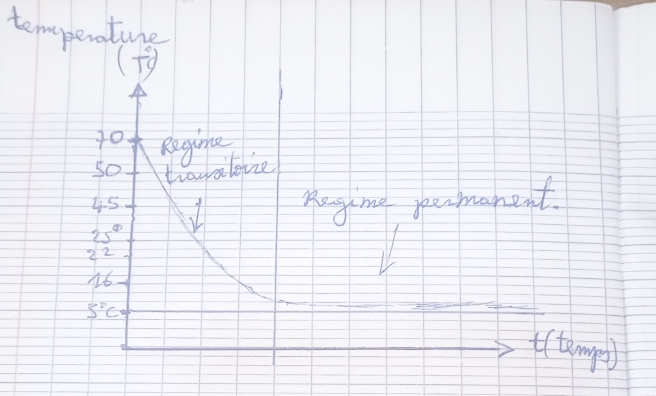 temperature
(T°)
70
Regime
transitoire
50
45
Regime permanent.
25°
22
16
5°C
t(temps)